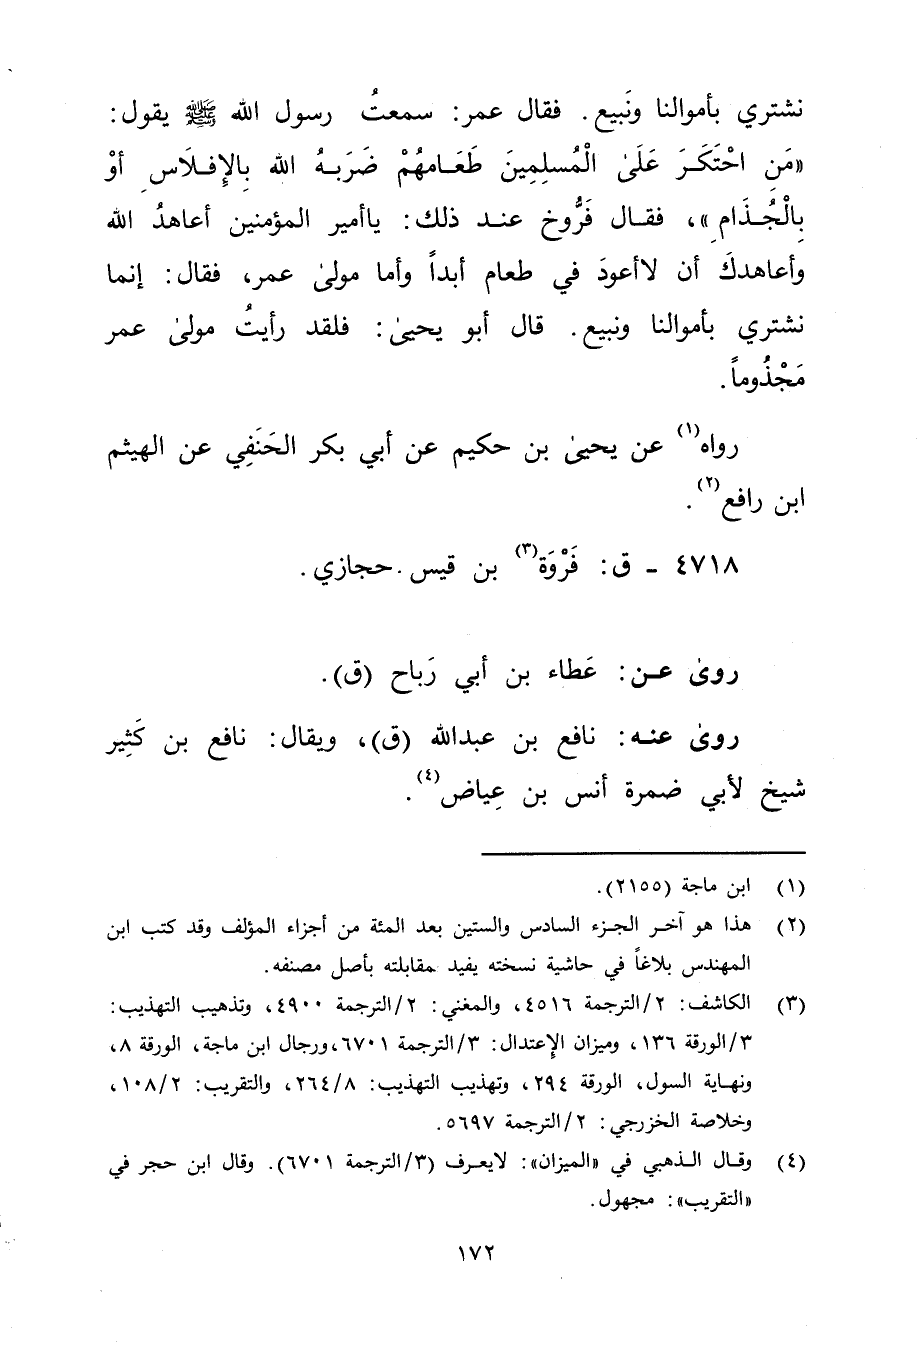 نشتري بأموالنا ونَبيع. فقال عمر: سمعتُ رسول الله ﷺ يقول:
«مَن احْتَكَرَ عَلَىٰ الْمُسلِمِينَ طَعَـامهُمْ ضَرَبـهُ الله بالإِفـلَاسِ أوْ
بالْجُـذَامِ»، فقـال فَرُّوخ عنـد ذلك: ياأمير المؤمنين أعاهدُ الله
وأعاهدكَ أن لاأعودَ في طعام أبداً وأما مولىٰ عمر، فقال: إنما
نشتري بأموالنا ونبيع. قال أبو يحيىٰ: فلقد رأيتُ مولىٰ عمر
مَجْذُوماً.
رواه(١) عن يحيىٰ بن حكيم عن أبي بكر الحَنَفِي عن الهيثم
ابن رافع(٢).
٤٧١٨ - ق: فَرْوَة(٣) بن قيس. حجازي.
روىٰ عـن: عَطاء بن أبي رَباح (ق).
روىٰ عنـه: نافع بن عبدالله (ق)، ويقال: نافع بن كَثِير
شيخ لأبي ضمرة أنس بن عِياض(٤).
(١) ابن ماجة (٢١٥٥).
(٢) هذا هو آخـر الجـزء السادس والستين بعد المئة من أجزاء المؤلف وقد كتب ابن
المهندس بلاغاً في حاشية نسخته يفيد مقابلته بأصل مصنفه.
(٣) الكاشف: ٢/الترجمة ٤٥١٦، والمغني: ٢/الترجمة ٤٩٠٠، وتذهيب التهذيب:
٣/الورقة ١٣٦، وميزان الإعتدال: ٣/الترجمة ٦٧٠١،ورجال ابن ماجة، الورقة ٨،
ونهـاية السول، الورقة ٢٩٤، وتهذيب التهذيب: ٢٦٤/٨، والتقريب: ١٠٨/٢،
وخلاصة الخزرجي: ٢/الترجمة ٥٦٩٧.
(٤) وقـال الـذهبي في «الميزان»: لايعـرف (٣/الترجمة ٦٧٠١). وقال ابن حجر في
«التقريب»: مجهول.
١٧٢